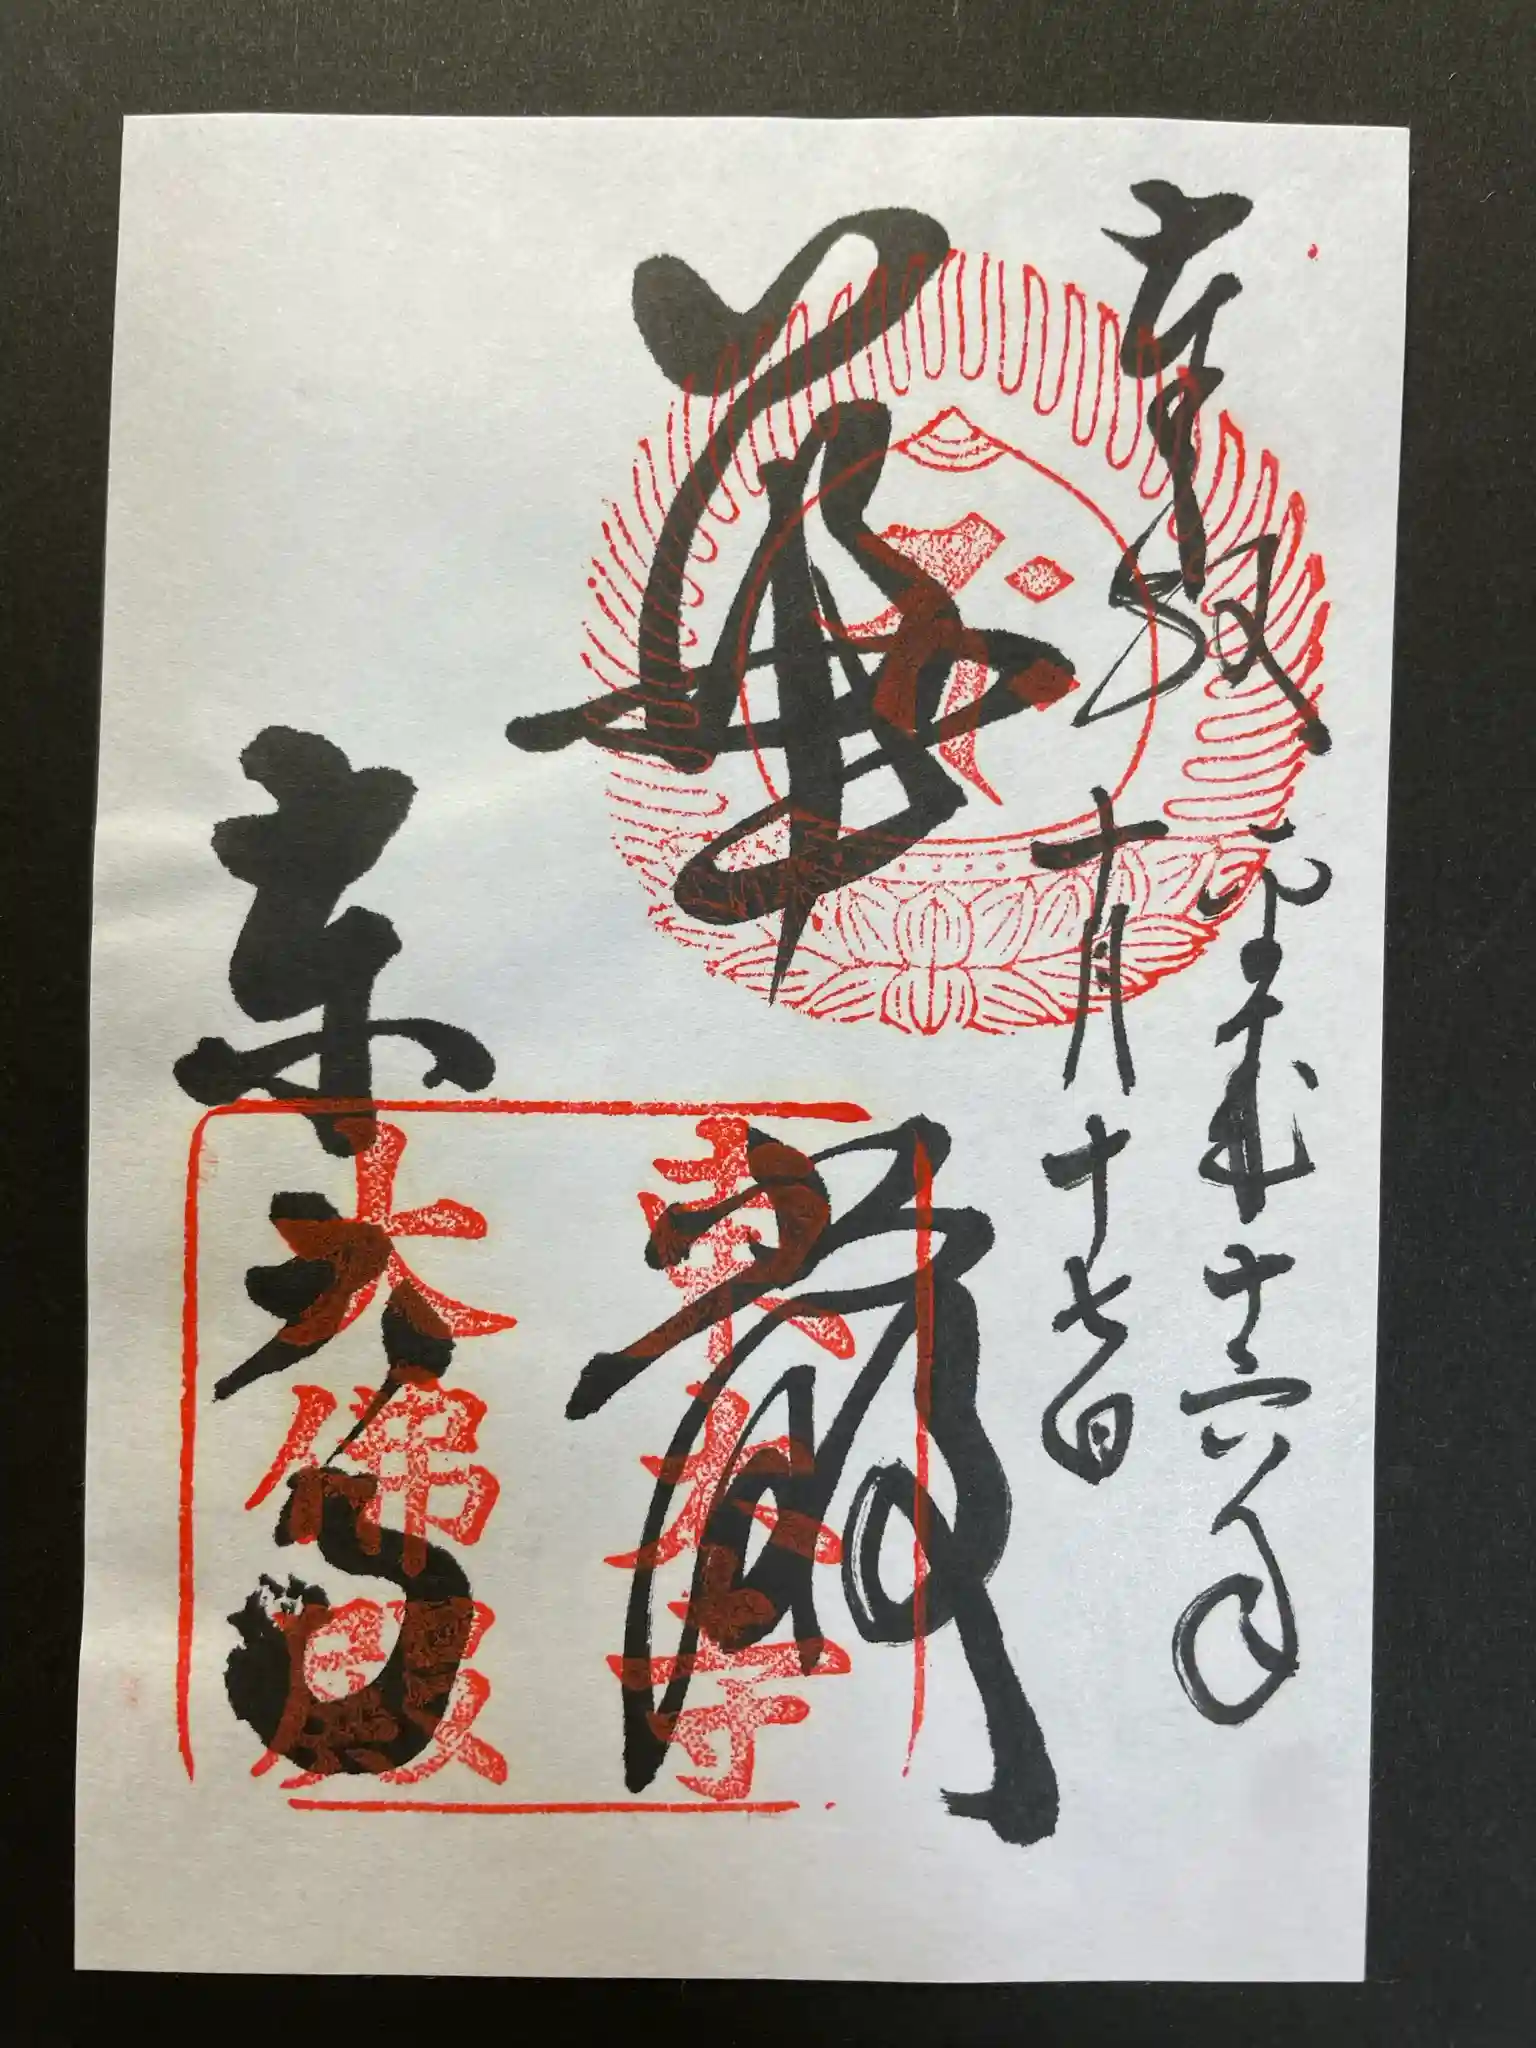 奉拝
平成十六年
十月十七日
華嚴
東大寺
東大寺
大佛殿